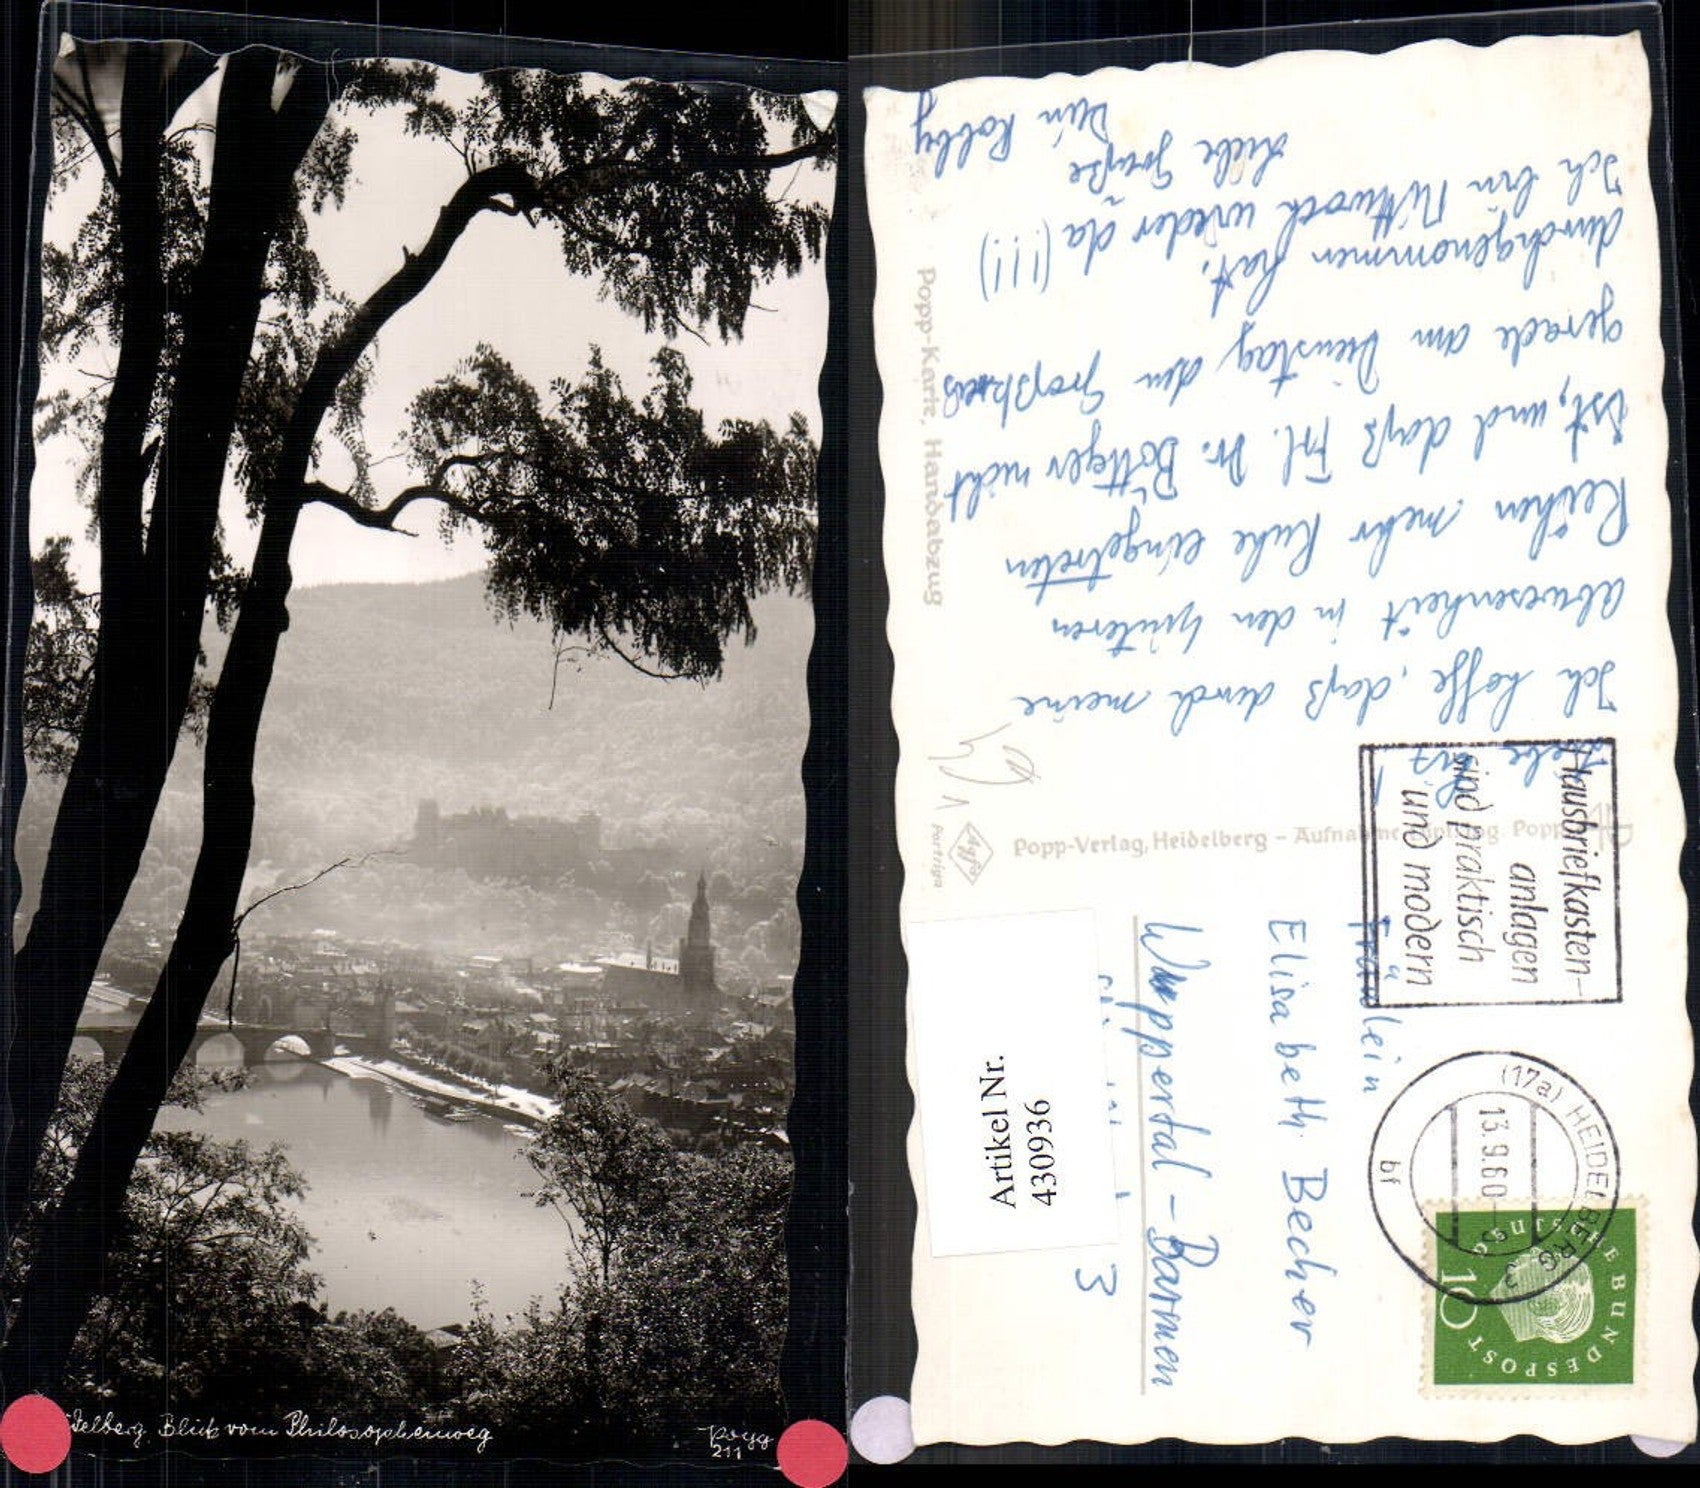 delberg. Blick vom Philosophenweg
Popp
211
Liebe
Ich hoffe, daß durch meine
Abwesenheit in den hinteren
Reihen mehr Ruhe eingetreten
ist, und daß Frl. Dr. Böttger nicht
gerade am Dienstag den Großkreis
durchgenommen hat.
Ich bin Mittwoch wieder da (!!!)
Liebe Grüße
Dein Robby
Popp-Karte, Handabzug
Popp-Verlag, Heidelberg – Aufnahme Dipl. Ing. Popp
Agfa
Portriga
Hausbriefkasten-
anlagen
sind praktisch
und modern
(17a) HEIDELBERG 3
13.9.60
bf
DEUTSCHE BUNDESPOST
10
Fräulein
Elisabeth Becher
Wuppertal-Barmen
3
Artikel Nr.
430936